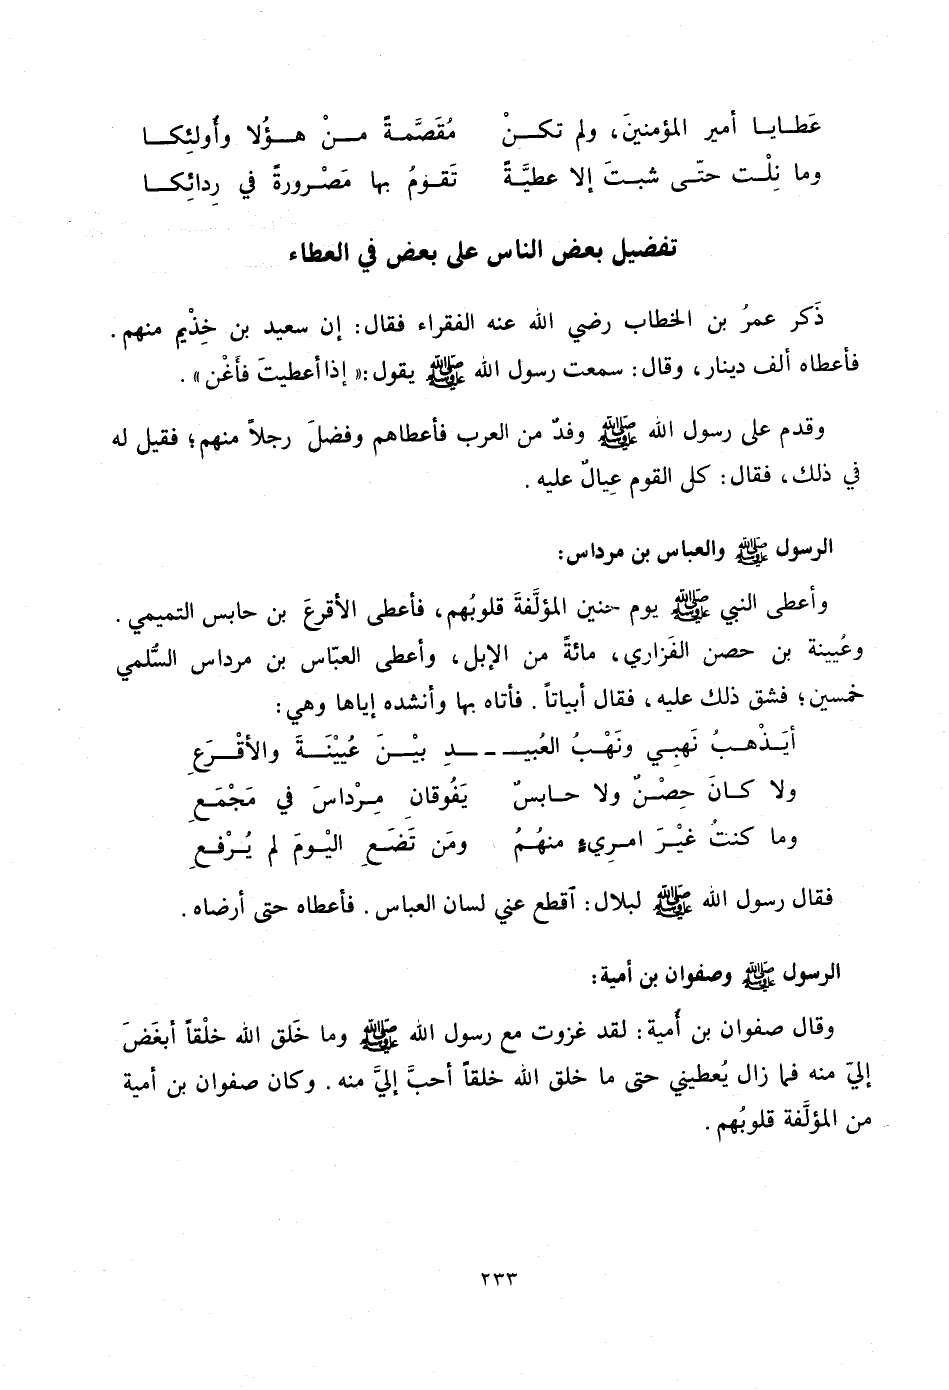 عَطايا أمير المؤمنينَ، ولم تكنْ مُقَصَّمةً منْ هؤُلا وأُولئِكا
وما نِلْت حتّى شبتَ إلا عطيَّةً تَقومُ بها مَصْرورةً في رِدائِكا
تفضيل بعض الناس على بعض في العطاء
ذَكر عمرُ بن الخطاب رضي الله عنه الفقراء فقال: إن سعيد بن خِذْيم منهم.
فأعطاه ألف دينار، وقال: سمعت رسول الله ﷺ يقول: «إذا أعطيتَ فأَغْن».
وقدم على رسول الله ﷺ وفدٌ من العرب فأعطاهم وفضلَ رجلاً منهم؛ فقيل له
في ذلك، فقال: كل القوم عِيالٌ عليه.
الرسول ﷺ والعباس بن مرداس:
وأعطى النبي ﷺ يوم حنين المؤلَّفةَ قلوبُهم، فأعطى الأقرعَ بن حابس التميمي.
وعُيينة بن حصن الفَزاري، مائةً من الإبل، وأعطى العبّاس بن مرداس السُّلمي
خمسين؛ فشق ذلك عليه، فقال أبياتاً. فأتاه بها وأنشده إياها وهي:
أيَذْهبُ نَهبي ونَهْبُ العُبيـ ـدِ بيْنَ عُيَيْنَةَ والأقْرَعِ
ولا كانَ حِصْنٌ ولا حابسٌ يَفُوقانِ مِرْداسَ في مَجْمَعِ
وما كنتُ غيْرَ امرِيءٍ منهُمُ ومَن تَضَعِ اليْومَ لم يُرْفعِ
فقال رسول الله ﷺ لبلال: آقطع عني لسان العباس. فأعطاه حتى أرضاه.
الرسول ﷺ وصفوان بن أمية:
وقال صفوان بن أُمية: لقد غزوت مع رسول الله ﷺ وما خَلق الله خلْقاً أبغَضَ
إليّ منه فما زال يُعطيني حتى ما خلق الله خلقاً أحبَّ إليَّ منه. وكان صفوان بن أمية
من المؤلَّفة قلوبُهم.
٢٣٣